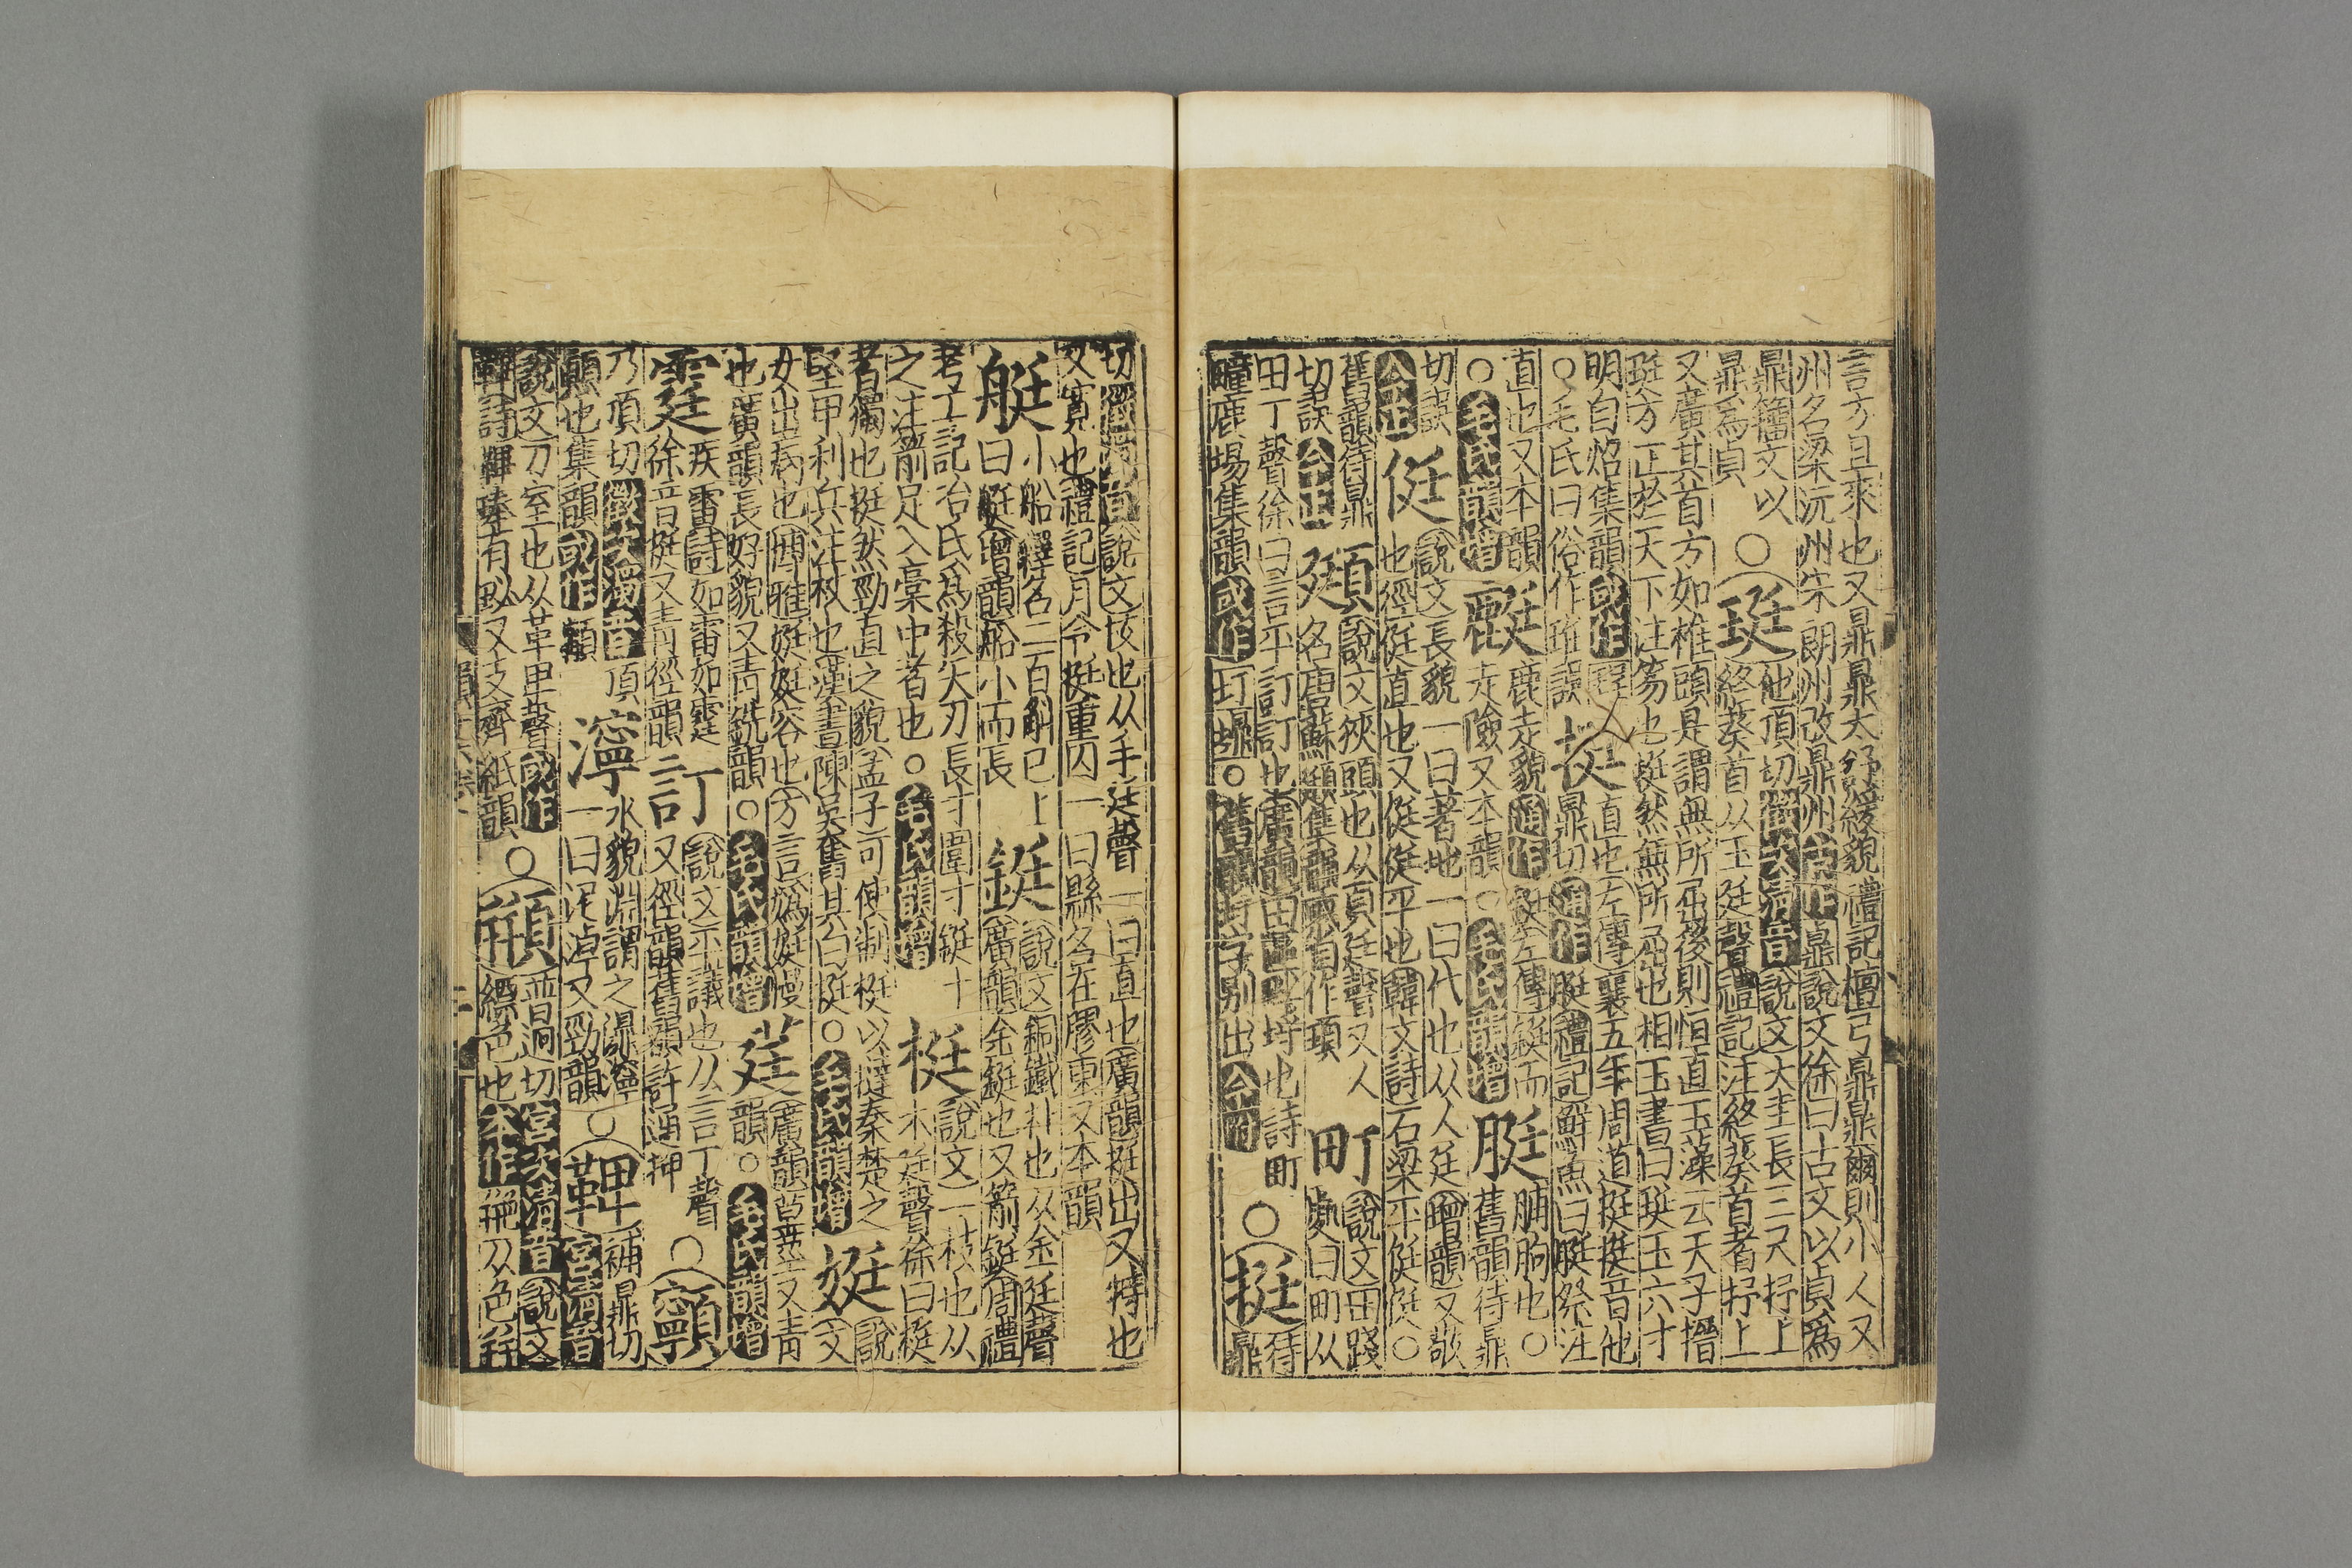 言方且來也又鼎鼎大舒緩貌禮記檀弓鼎鼎爾則小人又
州名梁沅州宋朗州改鼎州古作鼑說文徐曰古文以貞爲
鼎籒文以
鼎爲貞
○珽
他頂切徵次清音說文大圭長三尺抒上
終葵首从玉廷聲禮記注終葵首者抒上
又廣其首方如椎頭是謂無所屈後則恒直玉藻云天子搢
珽方正於天下注笏也挺然無所屈也相玉書曰珽玉六寸
明自炤集韻或作
○毛氏曰俗作珵誤
挺
直也左傳襄五年周道挺挺音他
鼎切通作脡禮記鮮魚曰脡祭注
直也又本韻
○毛氏韻增
鼮
鹿走貌通作鋌左傳鋌而
走險又本韻○毛氏韻增
脡
脯朐也○
舊韻待鼎
切誤
今正
侹
說文長貌一曰著地一曰代也从人廷聲韻又敬
也徑侹直也又侹侹平也韓文詩石梁平侹侹○
舊韻待鼎
切誤今正
頲
說文狹頭也从頁廷聲又人
名唐蘇頲集韻或省作頙
町
說文田踐
處曰町从
田丁聲徐曰言平訂訂也廣韻田區町埓也詩町
疃鹿場集韻或作圢㙩○舊韻圢字別出今附
○挺
待
鼎
切徵濁音說文拔也从手廷聲一曰直也廣韻挺出又特也
又寬也禮記月令挺重囚一曰縣名在膠東又本韻
艇
小船釋名二百斛已上
曰艇增韻船小而長
鋌
說文銅鐵朴也从金廷聲
廣韻金鋌也又箭鋌周禮
考工記冶氏爲殺矢刃長寸圍寸鋌十
之注箭足入稾中者也○毛氏韻增
梃
說文一枚也从
木廷聲徐曰梃
者獨也挺然勁直之貌孟子可使制梃以撻秦楚之
堅甲利兵注杖也漢書陳吳奮其白梃○毛氏韻增
娗
說
文
女出病也博雅娗娗容也方言僞娗慢
也廣韻長好貌又青銑韻○毛氏韻增
莛
廣韻草莖又青
韻○毛氏韻增
霆
疾雷詩如雷如霆
徐音挺又青徑韻
訂
說文平議也从言丁聲
又徑韻舊韻許通押
○顊
乃頂切徵次濁音頂
顊也集韻或作
濘
水貌淵謂之濎濘
一曰泥淖又勁韻
○鞞
補鼎切
宮清音
說文刀室也从革卑聲或作
鞸詩鞞琫有珌又支齊紙韻
○頩
普迥切宮次清音說文
縹色也本作艵从色幷